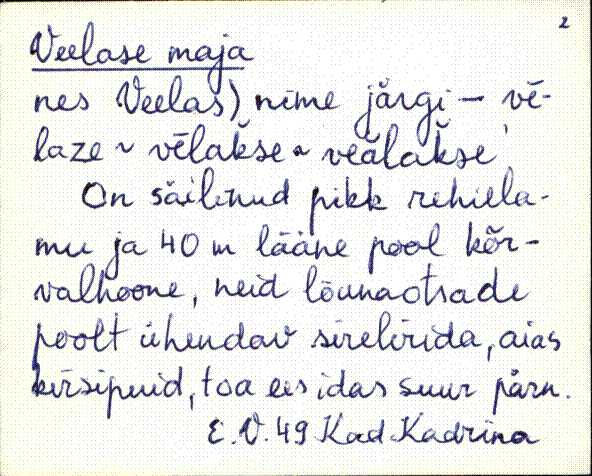 2
Veelase maja
nes Veelas) nime järgi – vē-
laze ~ vēlakše ~ veälakše
On säilinud pikk rehiela-
mu ja 40 m lääne pool kõr-
valhoone, neid lõunaotsade
poolt ühendav sirelirida, aias
kirsipuid, toa ees idas suur pärn.
E. V. 49 Kad Kadrina